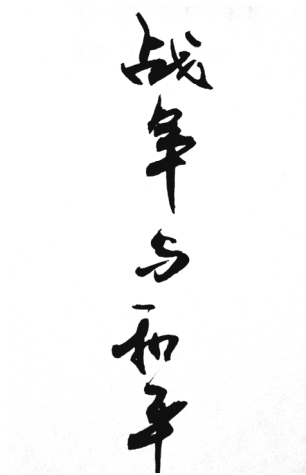 战争与和平